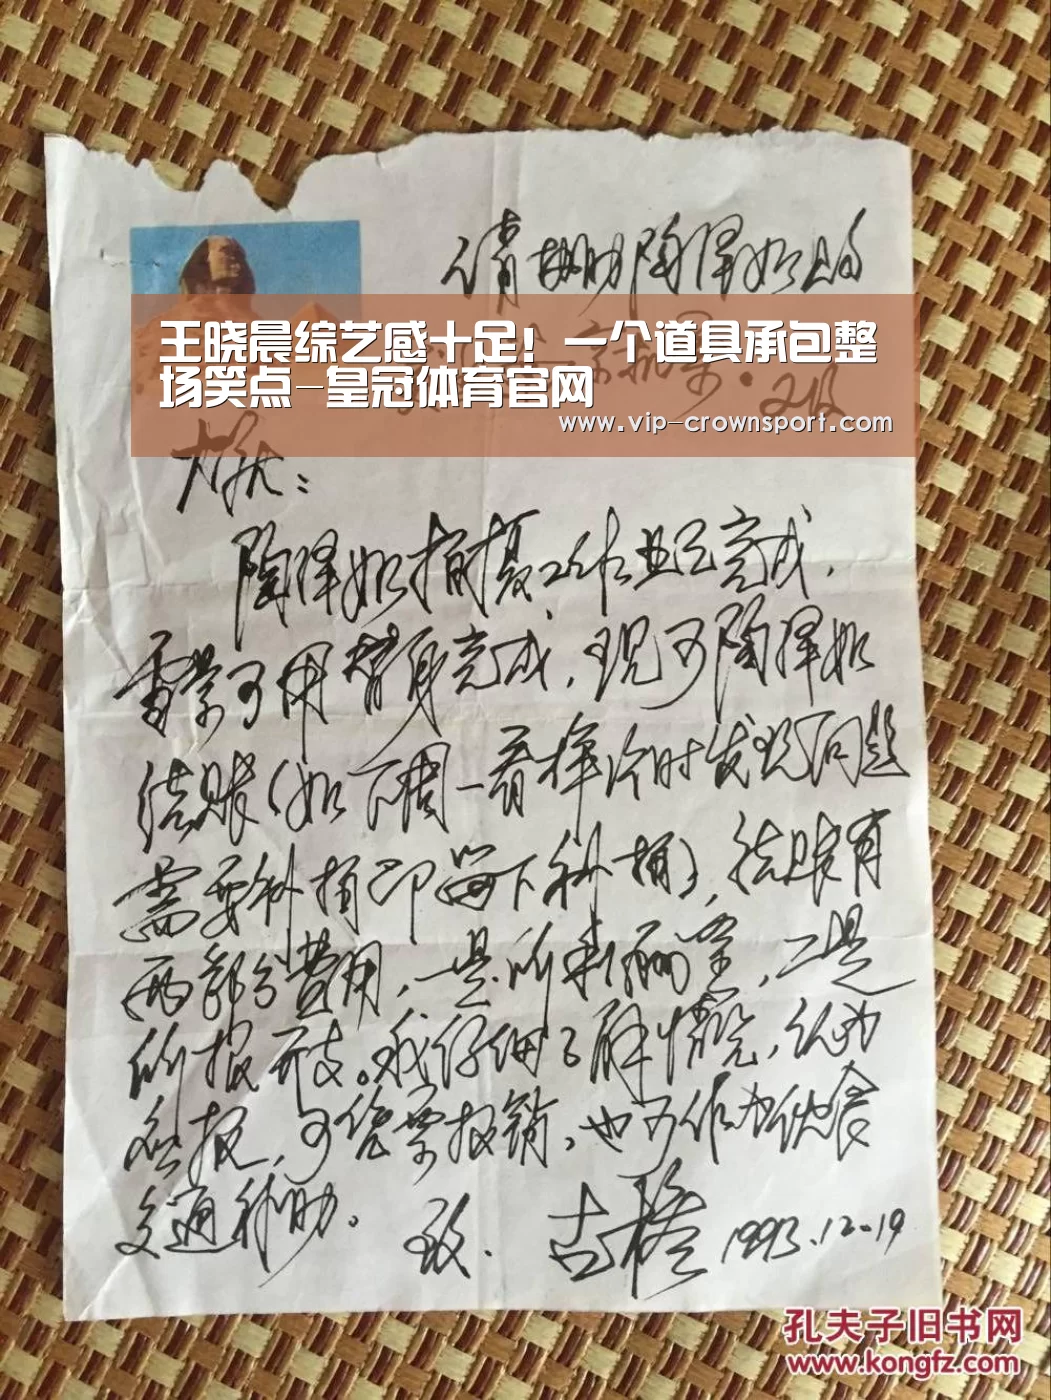 请协助陶泽如的
王晓晨综艺感十足！一个道具承包整
场笑点-皇冠体育官网
www.vip-crownsport.com
陶泽如拍摄工作业已完成，
雪景可用替身完成，现可陶泽如
结账（如下周一看样片时发现问题
需要补拍即留下补拍），结账有
两部分费用，一是所来酬金，二是
所报开支。我仔细了解情况，认为
应报，可凭票报销，也可作为伙食
交通补助。
致 古榕 1993.12-19
孔夫子旧书网
www.kongfz.com